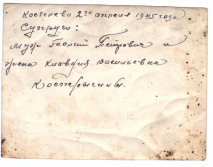 Костерево 2го апреля 1945 года
Супруги:
муж Георгий Петрович и
жена Клавдия Васильевна
Костерыгины.